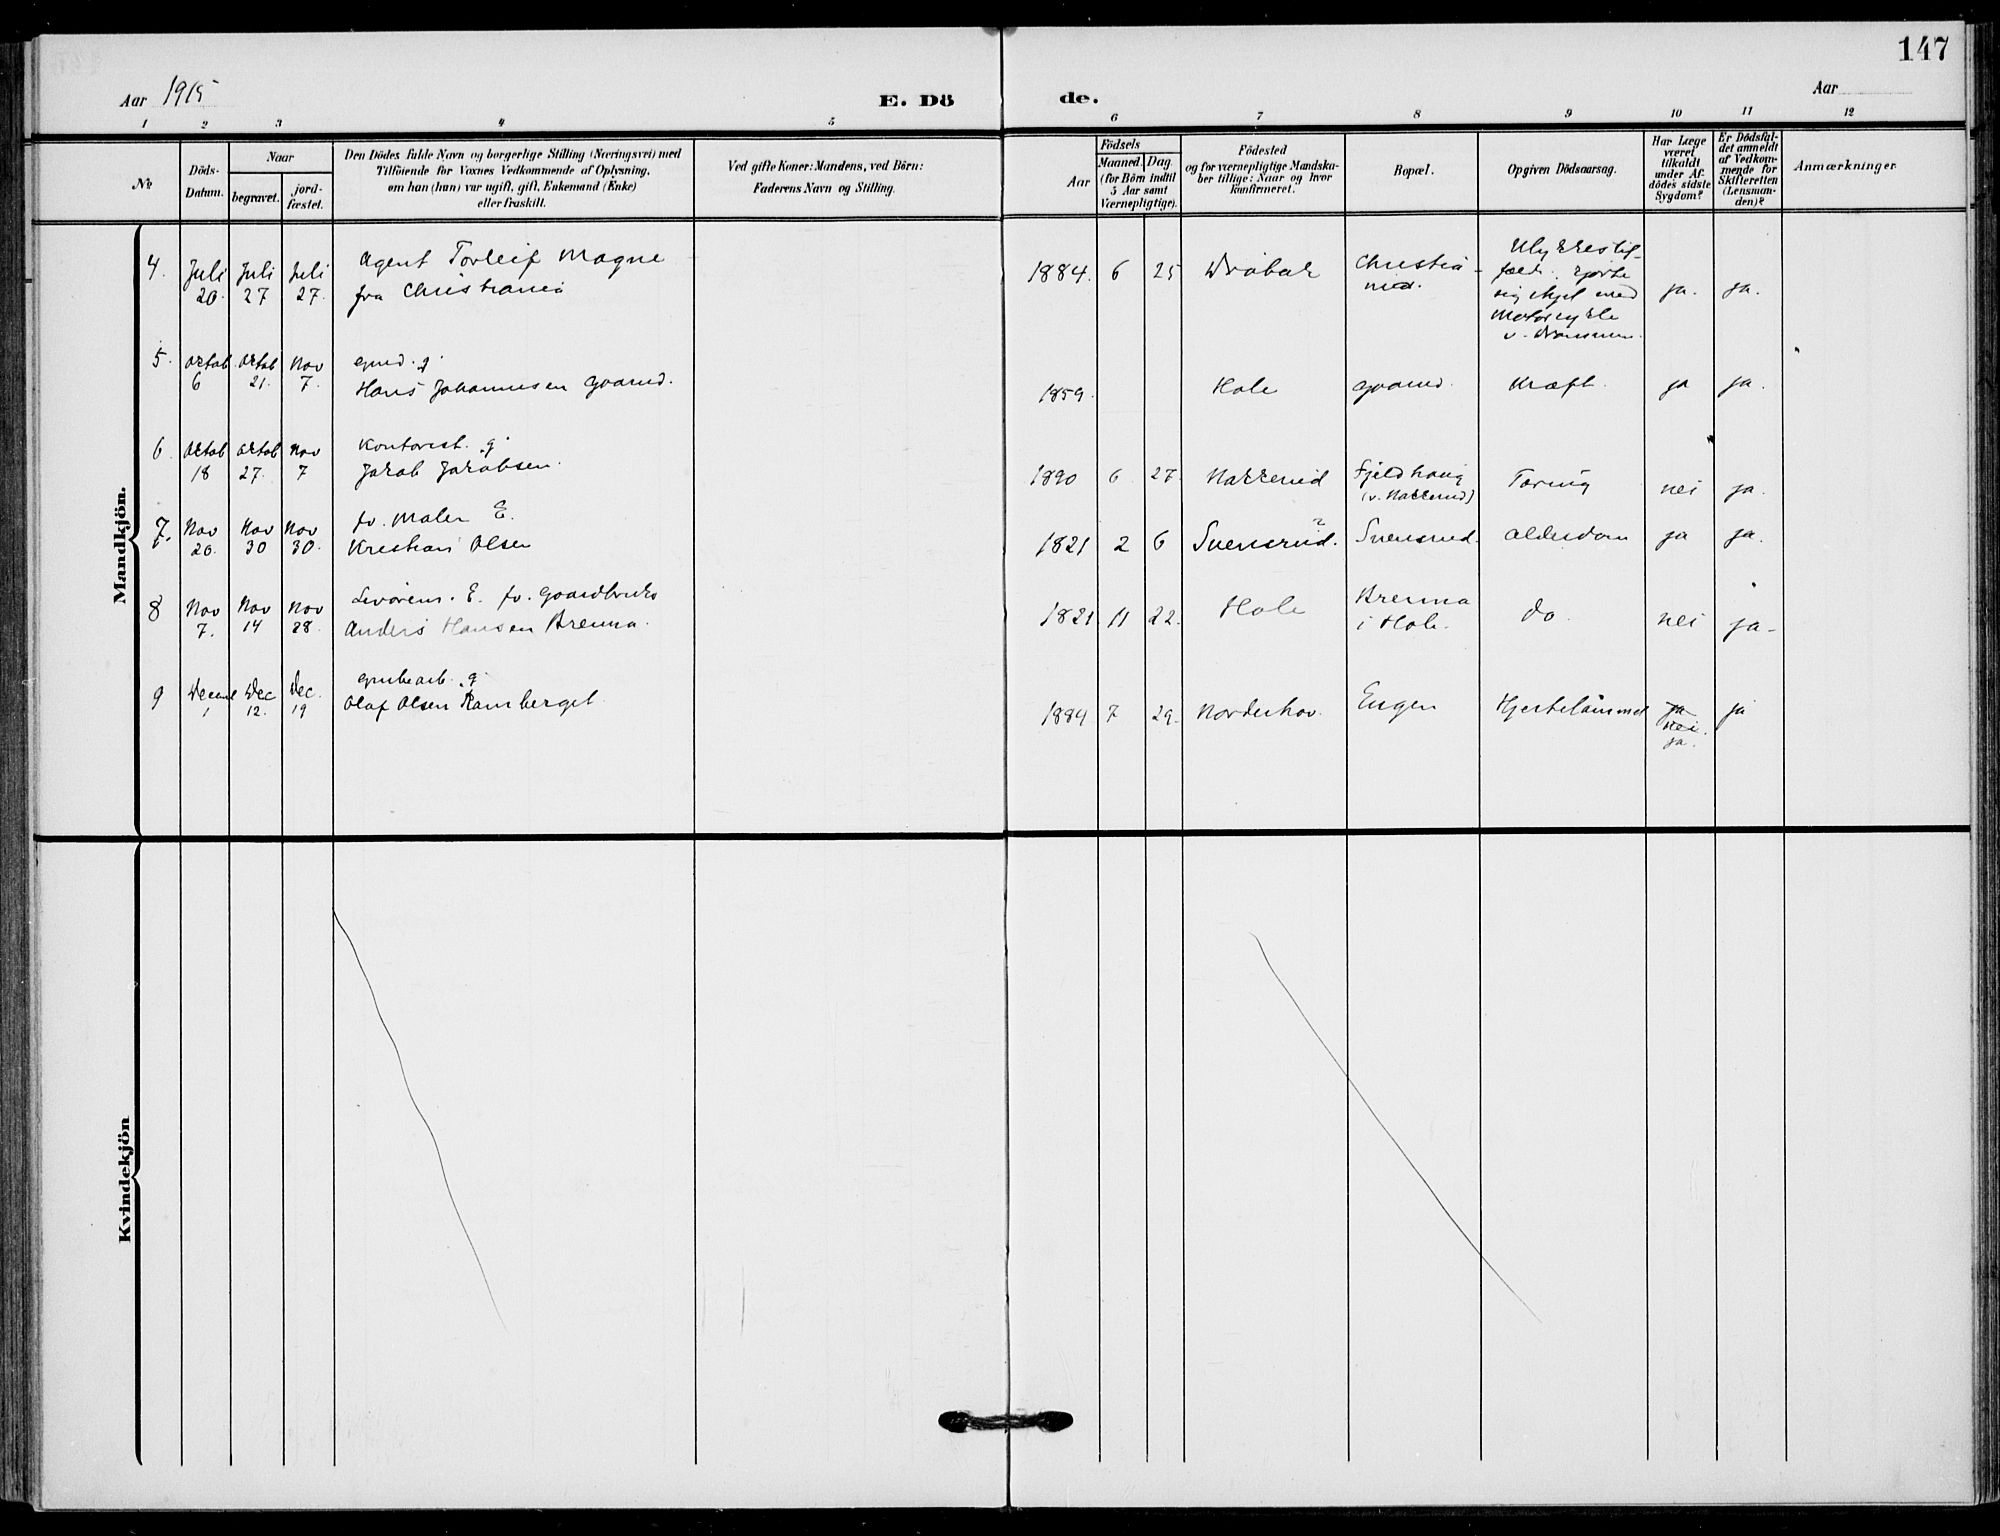 147
Aar 1915
E. Dö
de.
Aar
1 2 3 4 5 6 7 8 9 10 11 12
No
Döds-
Datum.
Naar
begravet.
jord-
fæstet.
Den Dödes fulde Navn og borgerlige Stilling (Næringsvei) med
Tilföiende for Voxnes Vedkommende af Oplysning,
om han (hun) var ugift, gift, Enkemand (Enke)
eller fraskilt.
Ved gifte Koner: Mandens, ved Börn:
Faderens Navn og Stilling.
Födsels
Aar
Maaned.
Dag.
(for Börn indtil
5 Aar samt
Værnepligtige).
Födested
og for værnepligtige Mandska-
ber tillige: Naar og hvor
konfirmeret.
Bopæl.
Opgiven Dödsaarsag.
Har Læge
været
tilkaldt
under Af-
dödes sidste
Sygdom?
Er Dödsfal-
det anmeldt
af Vedkom-
mende for
Skifteretten
(Lensman-
den)?
Anmærkninger
Mandkjön.
4. Juli 20. Juli 27 Juli 27.
Agent Torleif Magne
fra Christiania
1884. 6 25 Drøbak
Christia-
nia.
Ulykkestil-
fælde. kjørte
sig ihjel med
Motorcykle
ja. ja.
5. Oktob 6 Oktob 21. Nov 7.
g.
Hans Johannesen Gaarud.
1859. Hole Gaarud. Kræft. ja ja.
6. Oktob 18 Oktob 27. Nov 7
Kontorist. g.
Jakob Jakobsen.
1890 6 27. Nakkerud
Fjeldhaug
(v. Nakkerud)
Tæring nei ja.
7. Nov 20. Nov 30 Nov 30.
fv. Maler E.
Kristian Olsen
1821 2 6 Svensrud. Svensrud. Alderdom ja ja.
8 Nov 7. Nov 14 Nov 28.
E. fv. Gaardbruker
Anders Hansen Brenna.
1821 11 22. Hole
Brenna
i Hole.
do. nei ja-
9 1 Dec 12. Dec. 19
g.
Olaf Olsen Ramberget.
1884 7 29. Norderhov. Engen Hjertelammel
ja
nei.
ja.
ja
Kvindekjön